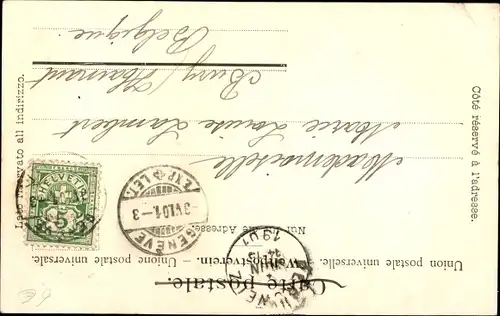 Carte postale.
Union postale universelle. — Weltpostverein. — Unione postale universale.
Côté réservé à l'adresse.
Nur für die Adresse.
Lato riservato all indirizzo.
HELVETIA
5
GENÈVE
3 VI.01.–3
EXP. LET.
1901
JUIN
Mademoiselle
Marie Louise Lambert
Bury / Hainaut
Belgique
6€